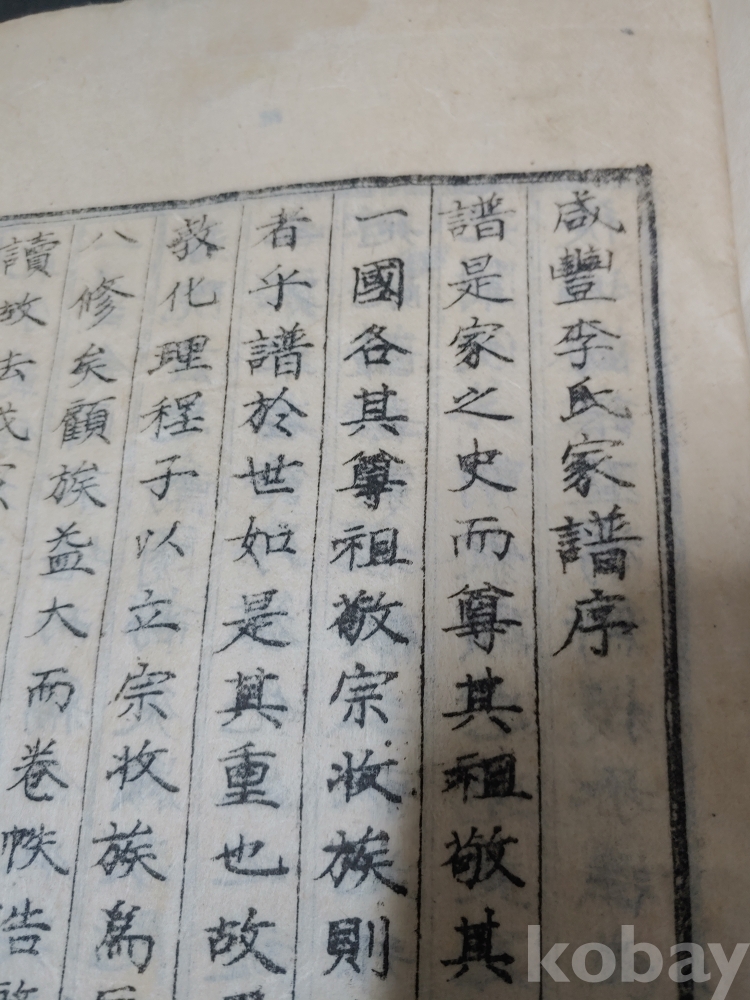 咸豐李氏家譜序
譜是家之史而尊其祖敬其
一國各其尊祖敬宗收族則
者乎譜於世如是其重也故
敎化理程子以立宗收族爲
八修矣顧族益大而卷帙浩
讀故去
kobay